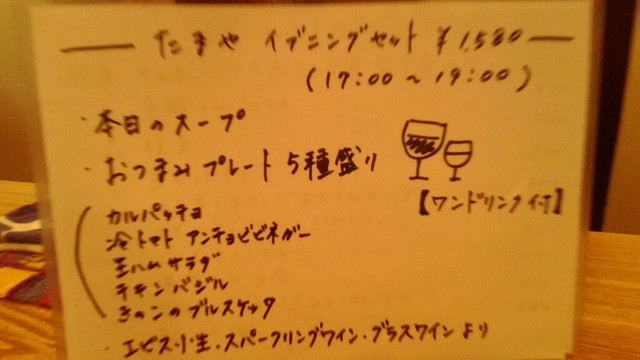 たまや イブニングセット ¥1,580
(17:00～19:00)
・本日のスープ
・おつまみプレート 5種盛り
【ワンドリンク付】
カルパッチョ
冷トマト アンチョビビネガー
生ハムサラダ
チキンバジル
きのこのブルスケッタ
・エビス小生・スパークリングワイン・グラスワインより